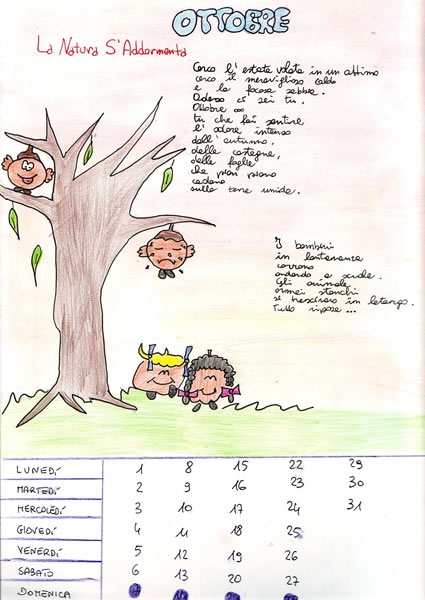 OTTOBRE
La Natura S'Addormenta
Cerco l'estate volata in un attimo
cerco il meraviglioso caldo
e la focosa sabbia.
Adesso ci sei tu,
Ottobre
tu che fai sentire
l'odore intenso
dell'autunno,
delle castagne,
delle foglie
che pian piano
cadono
sulla terra umida.
I bambini
in lontananza
corrono
andando a scuola.
Gli animali
ormai stanchi
si in letargo.
Tutto riposa...
LUNEDÍ 1 8 15 22 29
MARTEDÍ 2 9 16 23 30
MERCOLEDÍ 3 10 17 24 31
GIOVEDÍ 4 11 18 25
VENERDÍ 5 12 19 26
SABATO 6 13 20 27
DOMENICA 7